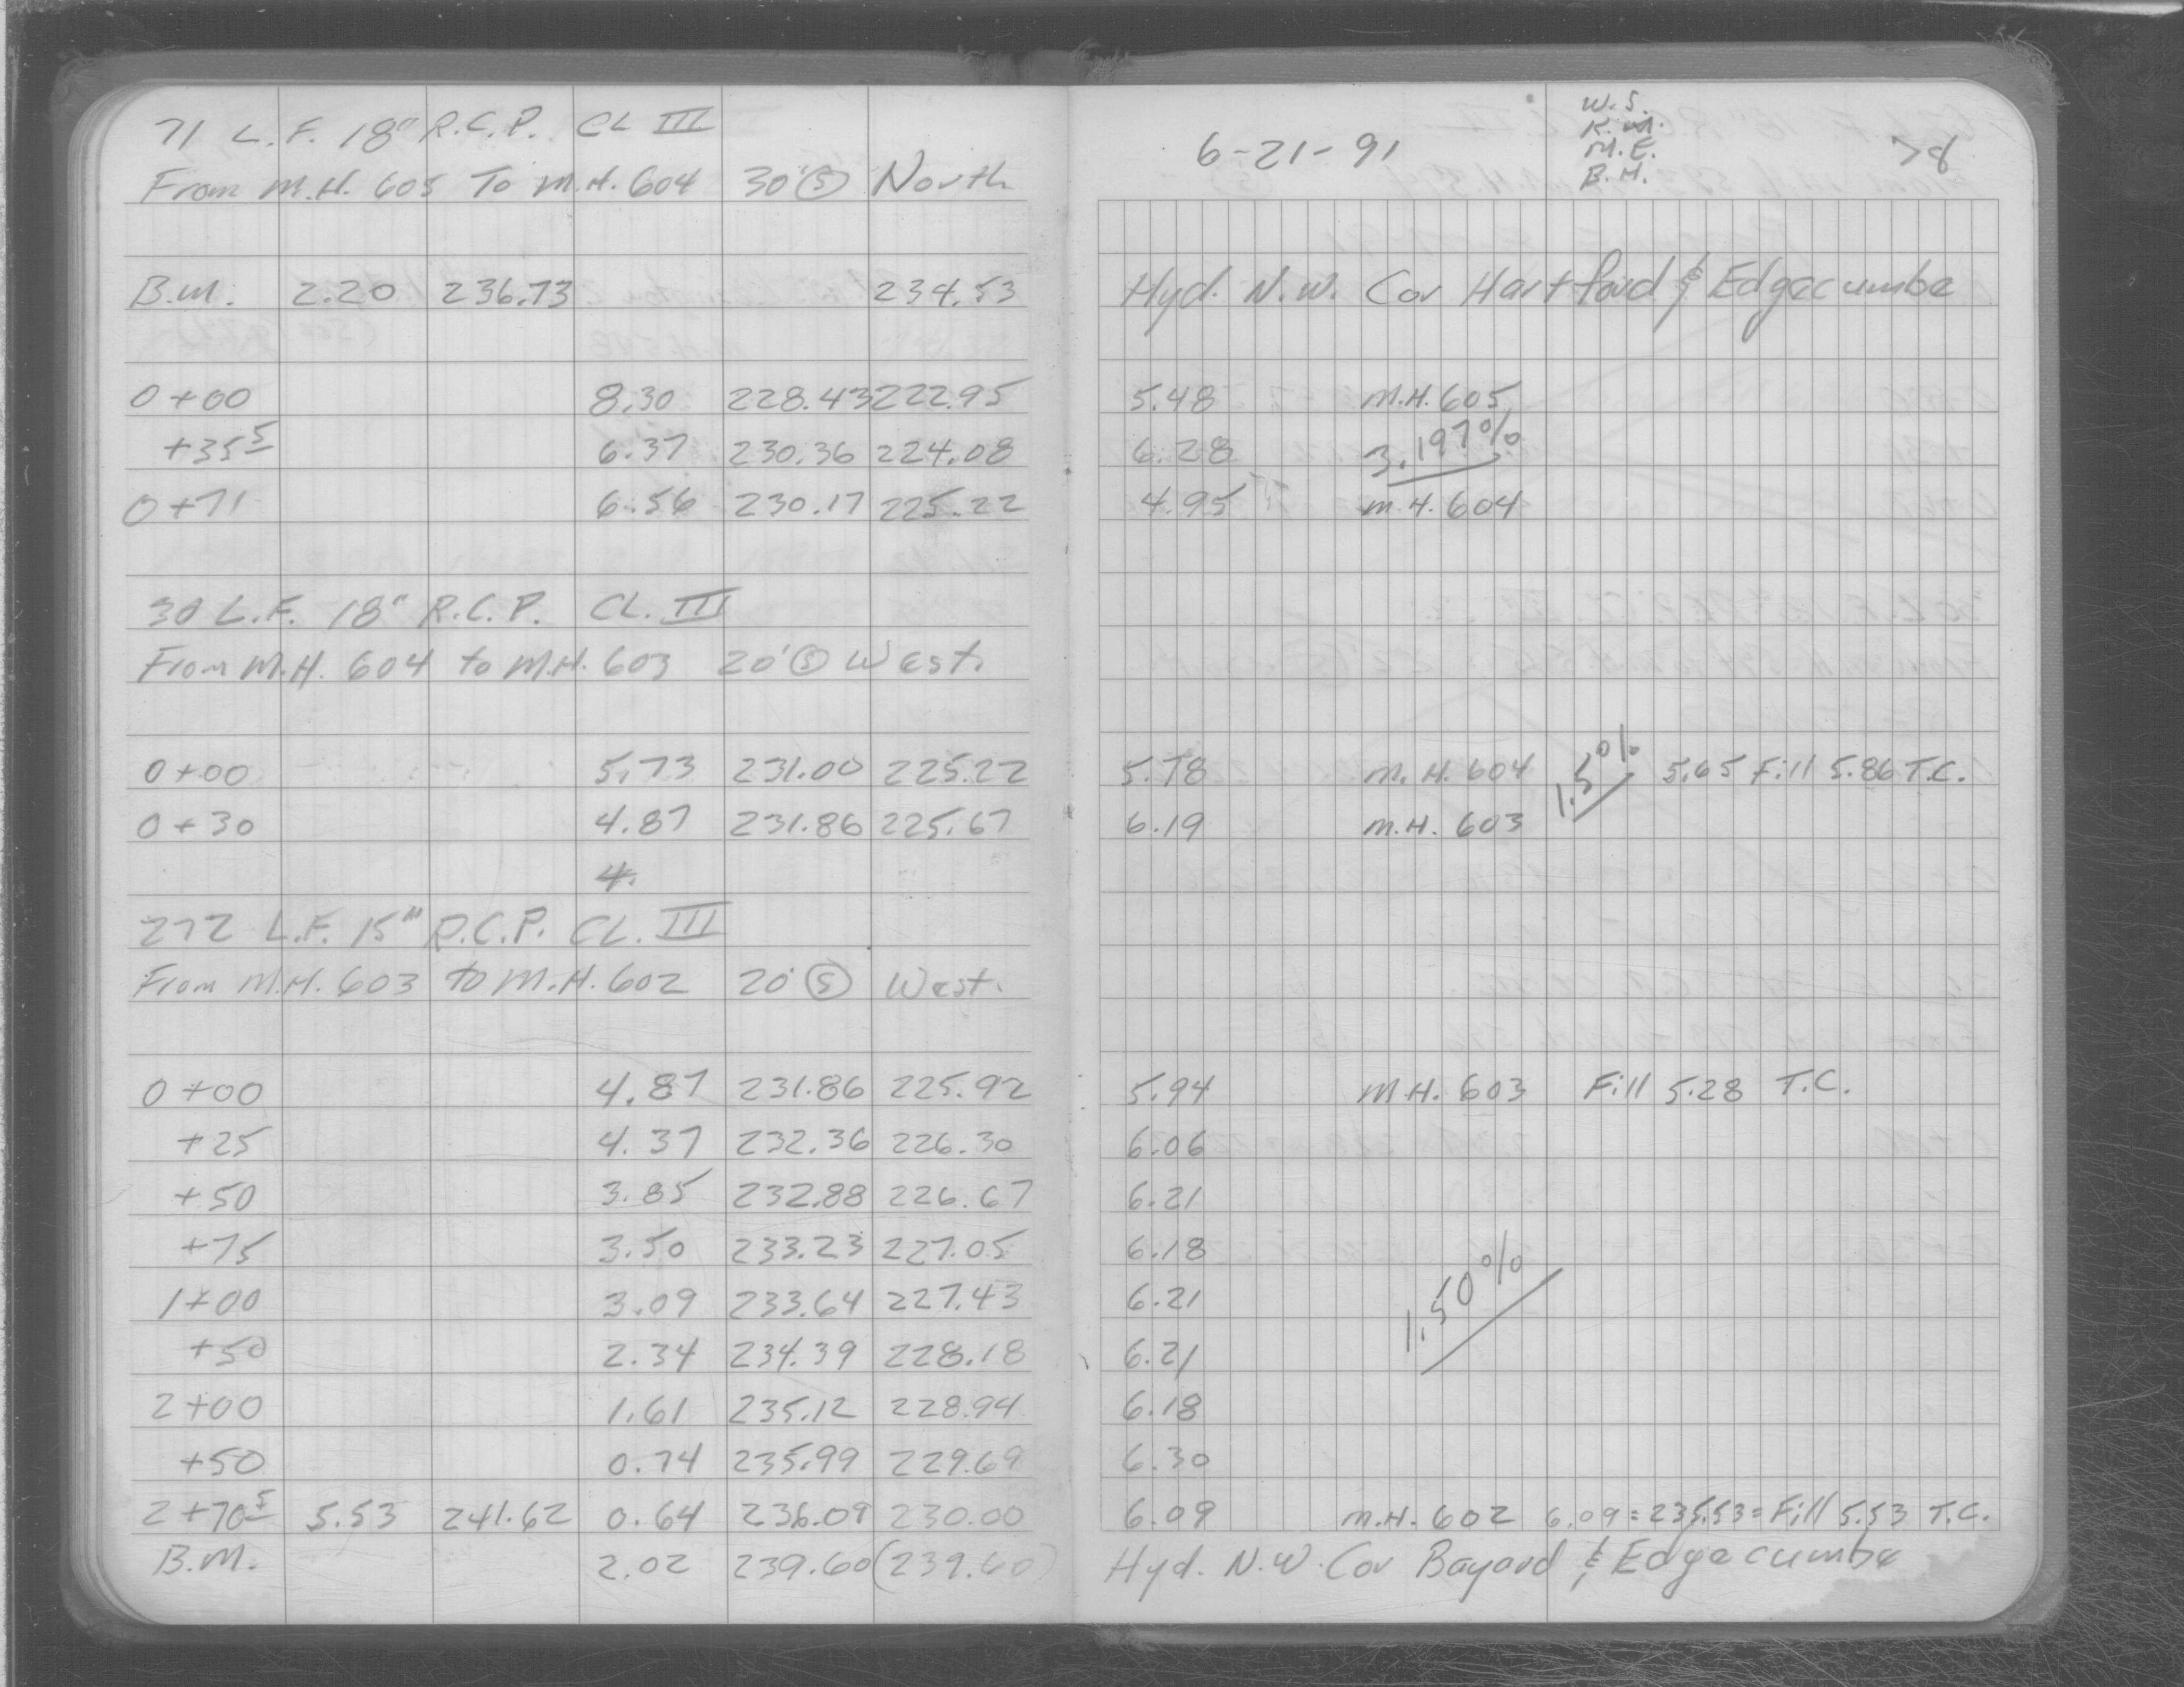 71 L.F. 18" R.C.P. CL III
From M.H. 605 To M.H. 604 30' Ⓢ North
B.M. 2.20 236.73 234.53
0+00 8.30 228.43 222.95
+35⁵ 6.37 230.36 224.08
0+71 6.56 230.17 225.22
30 L.F. 18" R.C.P. CL. III
From M.H. 604 to M.H. 603 20' Ⓢ West.
0+00 5.73 231.00 225.22
0+30 4.87 231.86 225.67
4.
272 L.F. 15" R.C.P. CL. III
From M.H. 603 to M.H. 602 20' Ⓢ West.
0+00 4.87 231.86 225.92
+25 4.37 232.36 226.30
+50 3.85 232.88 226.67
+75 3.50 233.23 227.05
1+00 3.09 233.64 227.43
+50 2.34 234.39 228.18
2+00 1.61 235.12 228.94
+50 0.74 235.99 229.69
2+70⁵ 5.53 241.62 0.64 236.09 230.00
B.M. 2.02 239.60 (239.60)
6-21-91
W.S.
K.M.
M.E.
B.H.
78
Hyd. N.W. Cor Hartford & Edgecumbe
5.48 M.H. 605
6.28 3.197%
4.95 M.H. 604
5.78 M.H. 604 1.5% 5.65 Fill 5.86 T.C.
6.19 M.H. 603
5.94 M.H. 603 Fill 5.28 T.C.
6.06
6.21
6.18
6.21 1.50%
6.21
6.18
6.30
6.09 M.H. 602 6.09 = 235.53 = Fill 5.53 T.C.
Hyd. N.W. Cor Bayard & Edgecumbe